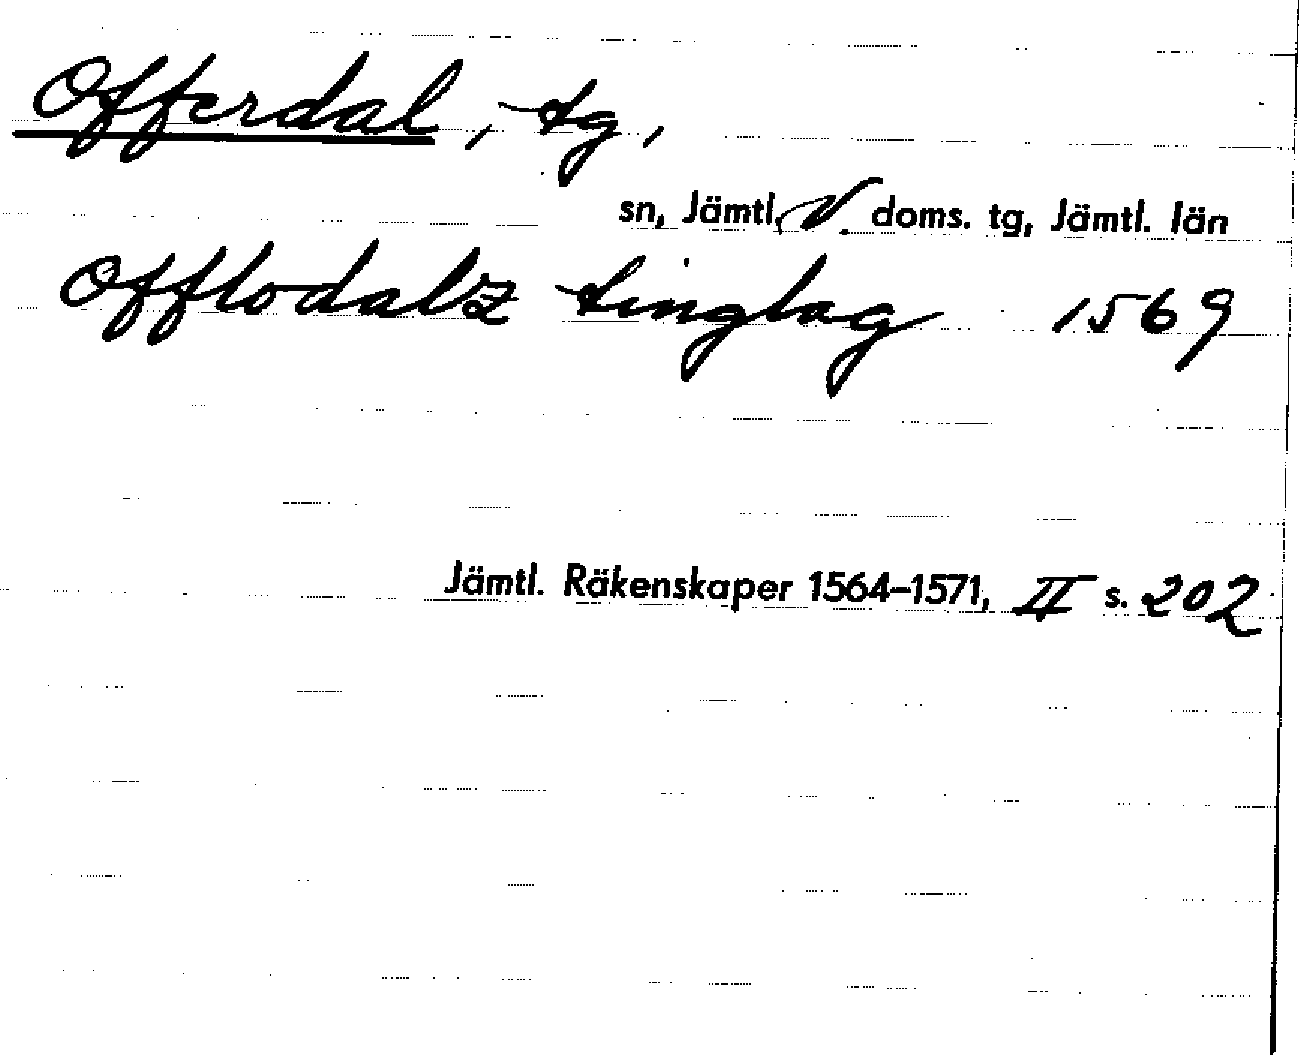 Offerdal, tg,
sn, Jämtl. V. doms. tg, Jämtl. län
Offlodalz tinglag 1569
Jämtl. Räkenskaper 1564–1571, II s. 202